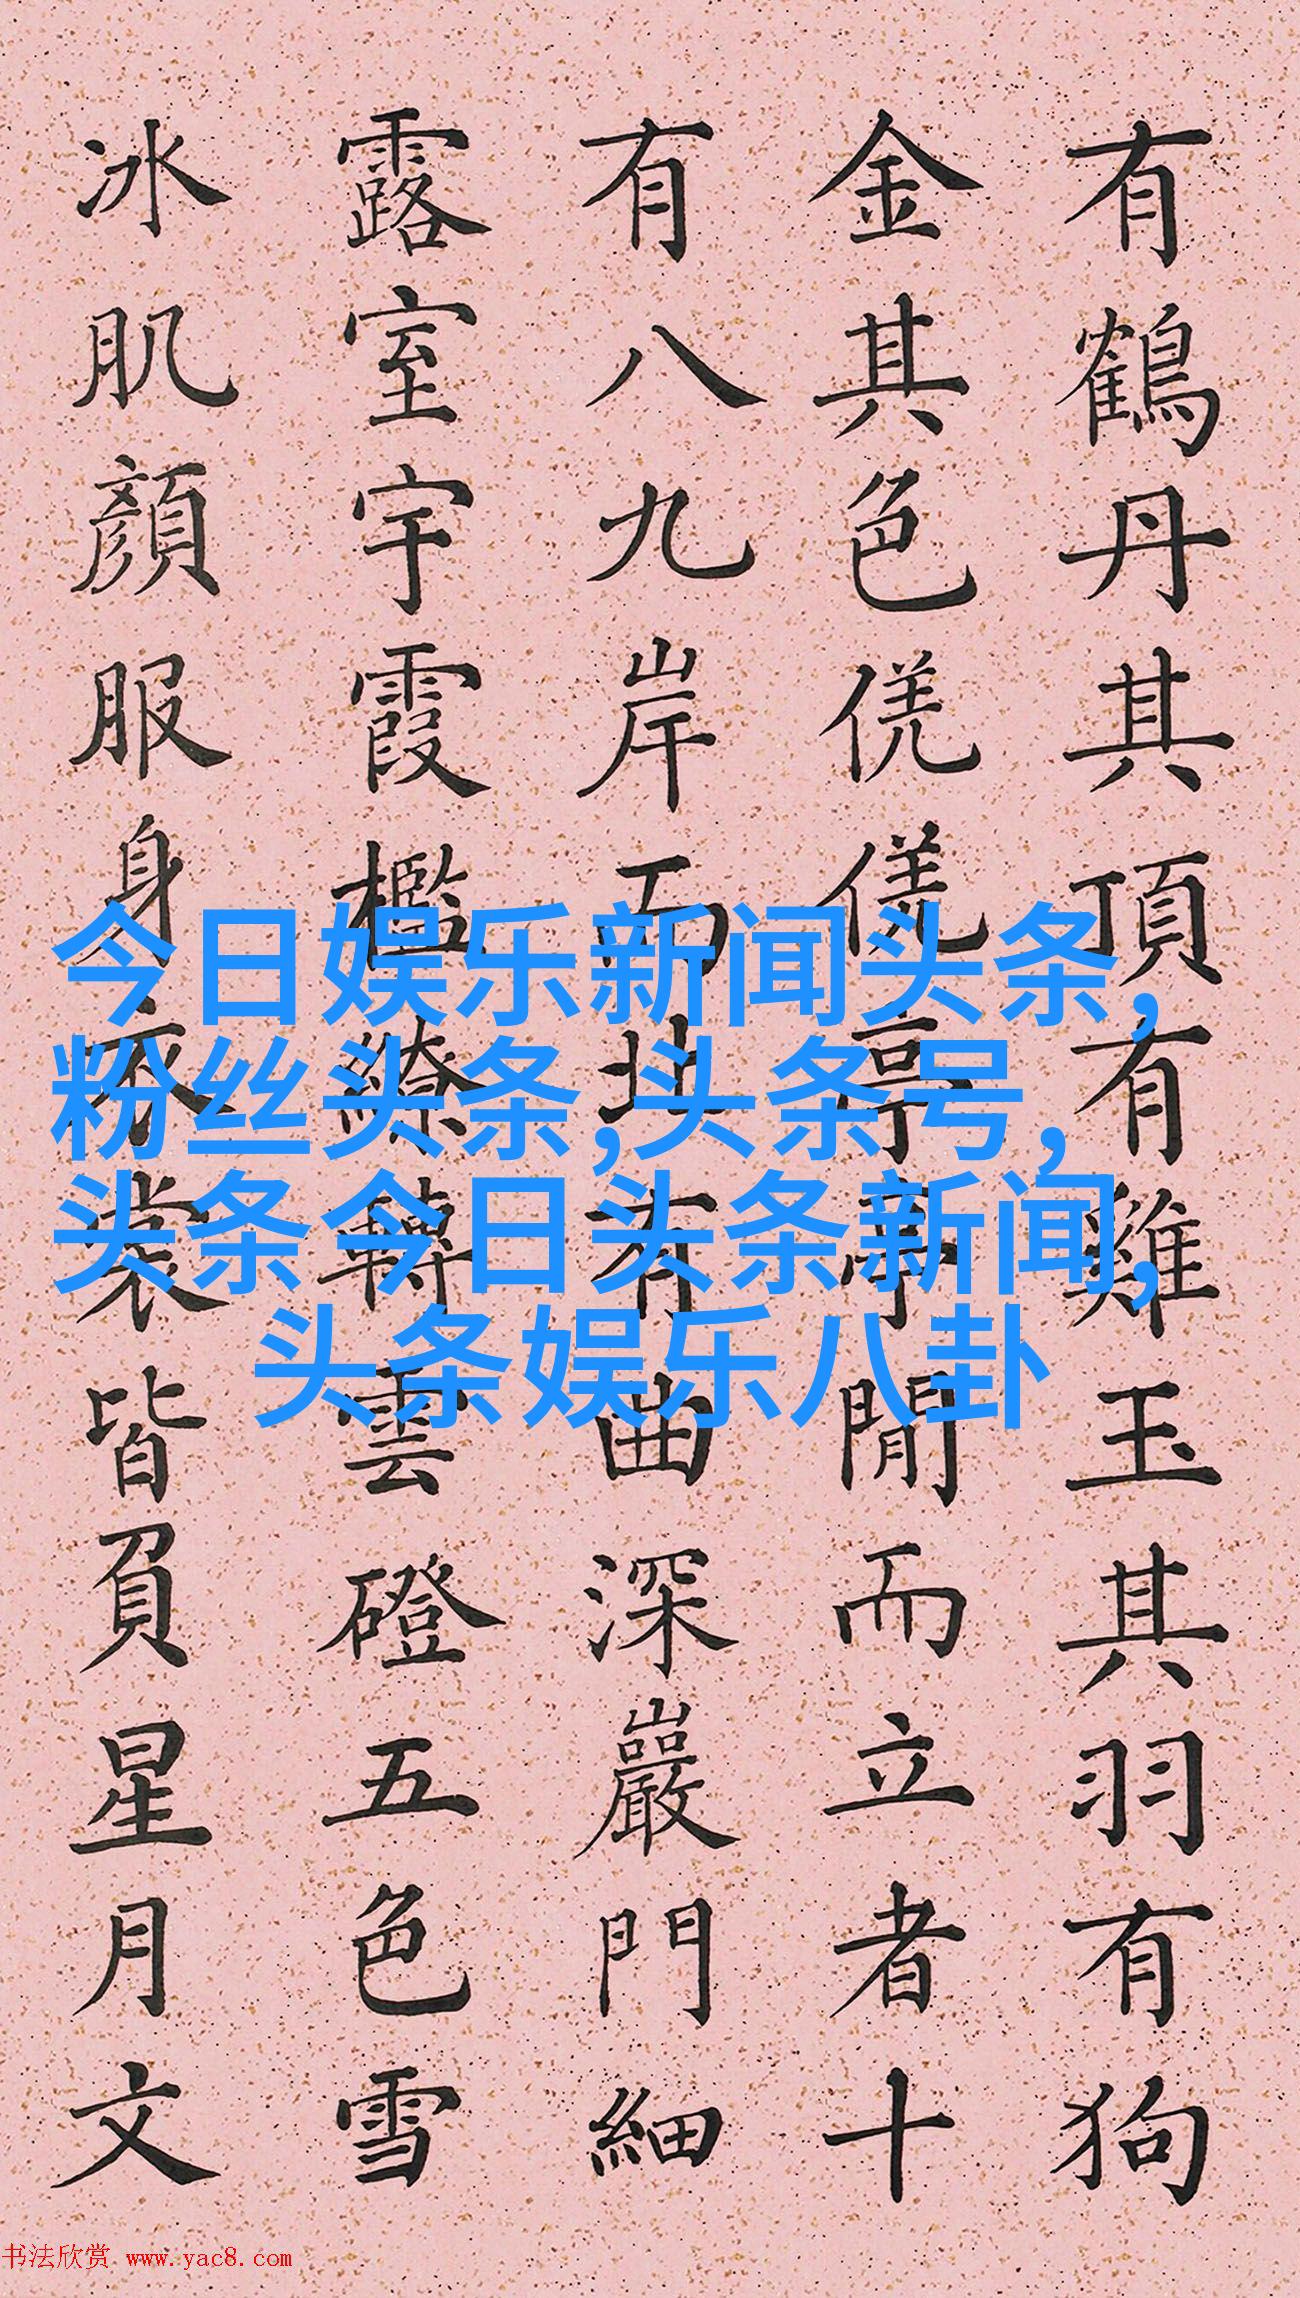 有鶴丹其頂有雞玉其羽有狗
金其色亭亭閒而立者十
有八九岸北有曲深巖門細
露室宇霞檻繚轉雲磴五色雪
冰肌顏服身衣裳皆負星月文
今日娱乐新闻头条,
粉丝头条,头条号,
头条今日头条新闻,
头条娱乐八卦
书法欣赏 www.yac8.com